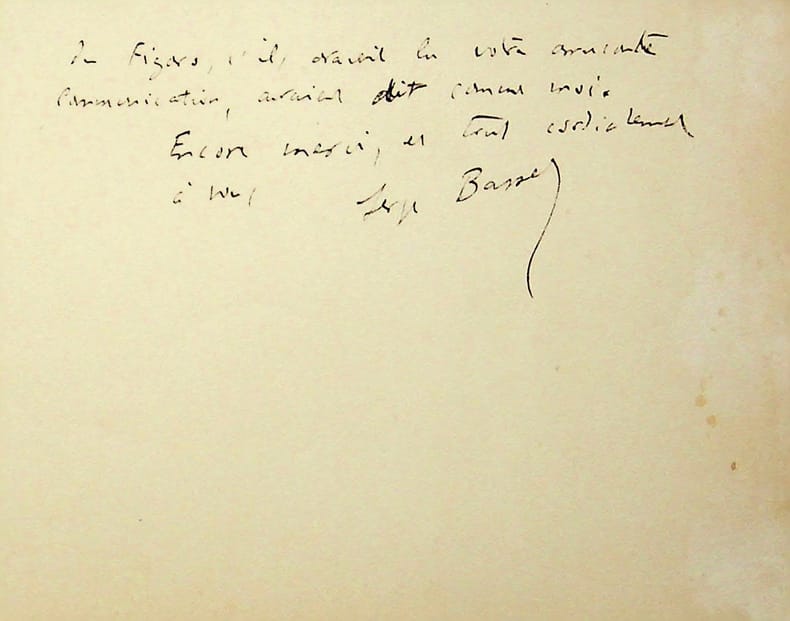 du Figaro, s'ils avaient lu votre amusante
communication, auraient dit comme moi.
Encore merci, et tout cordialement
à vous
Serge Basset